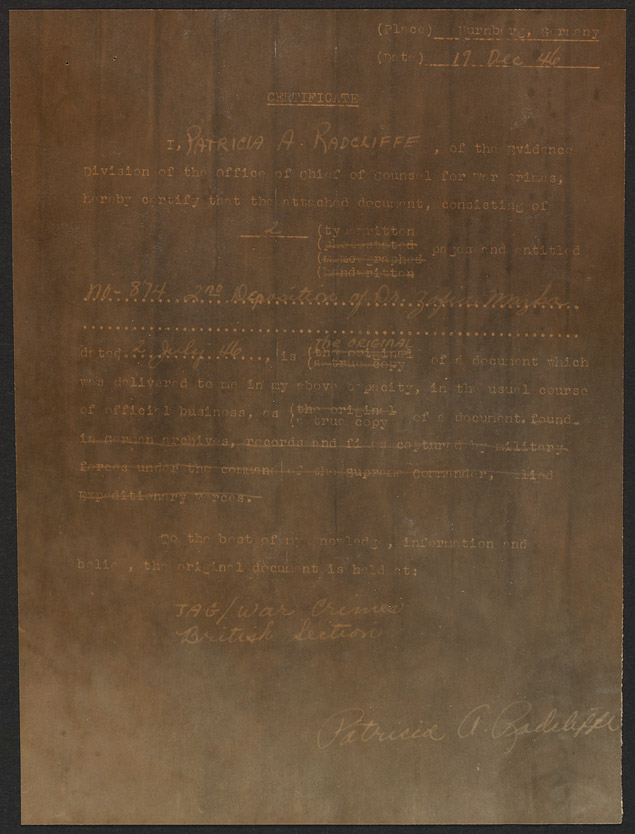 (Place) Nurnberg, Germany
(Date) 17 Dec 46
CERTIFICATE
I, PATRICIA A. RADCLIFFE, of the Evidence
Division of the Office of Chief of Counsel for War Crimes,
hereby certify that the attached document, consisting of
2 (typewritten
(photostated pages and entitled
(mimeographed
(handwritten
NO-874 2nd Deposition of Dr. Zofia Maczka
dated 2 July 46, is (the original of a document which
THE ORIGINAL
(a true copy
was delivered to me in my above capacity, in the usual course
of official business, as (the original of a document found
(a true copy
in German archives, records and files captured by military
forces under the command of the Supreme Commander, Allied
Expeditionary Forces.
To the best of my knowledge, information and
belief, the original document is held at:
JAG/War Crimes
British Section
Patricia A. Radcliffe